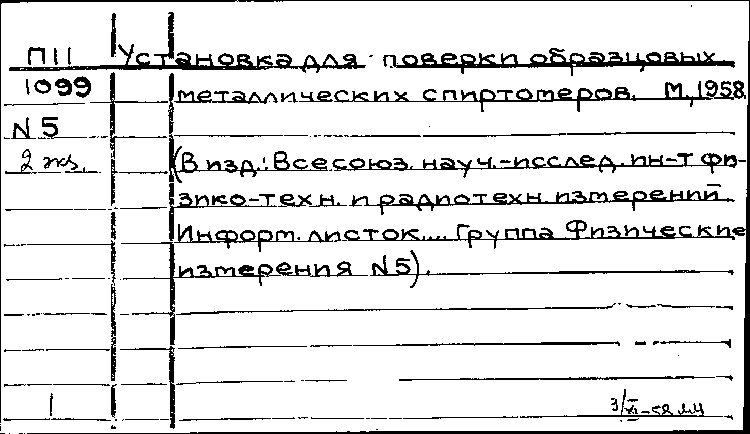 П11 Установка для поверки образцовых
1099 металлических спиртомеров. М., 1958.
N 5
2 экз. (В изд.: Всесоюз. науч.-исслед. ин-т фи-
зико-техн. и радиотехн. измерений.
Информ. листок.... Группа Физические
измерения N 5).
1